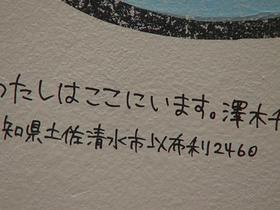 わたしはここにいます。澤木千
知県土佐清水市以布利2460